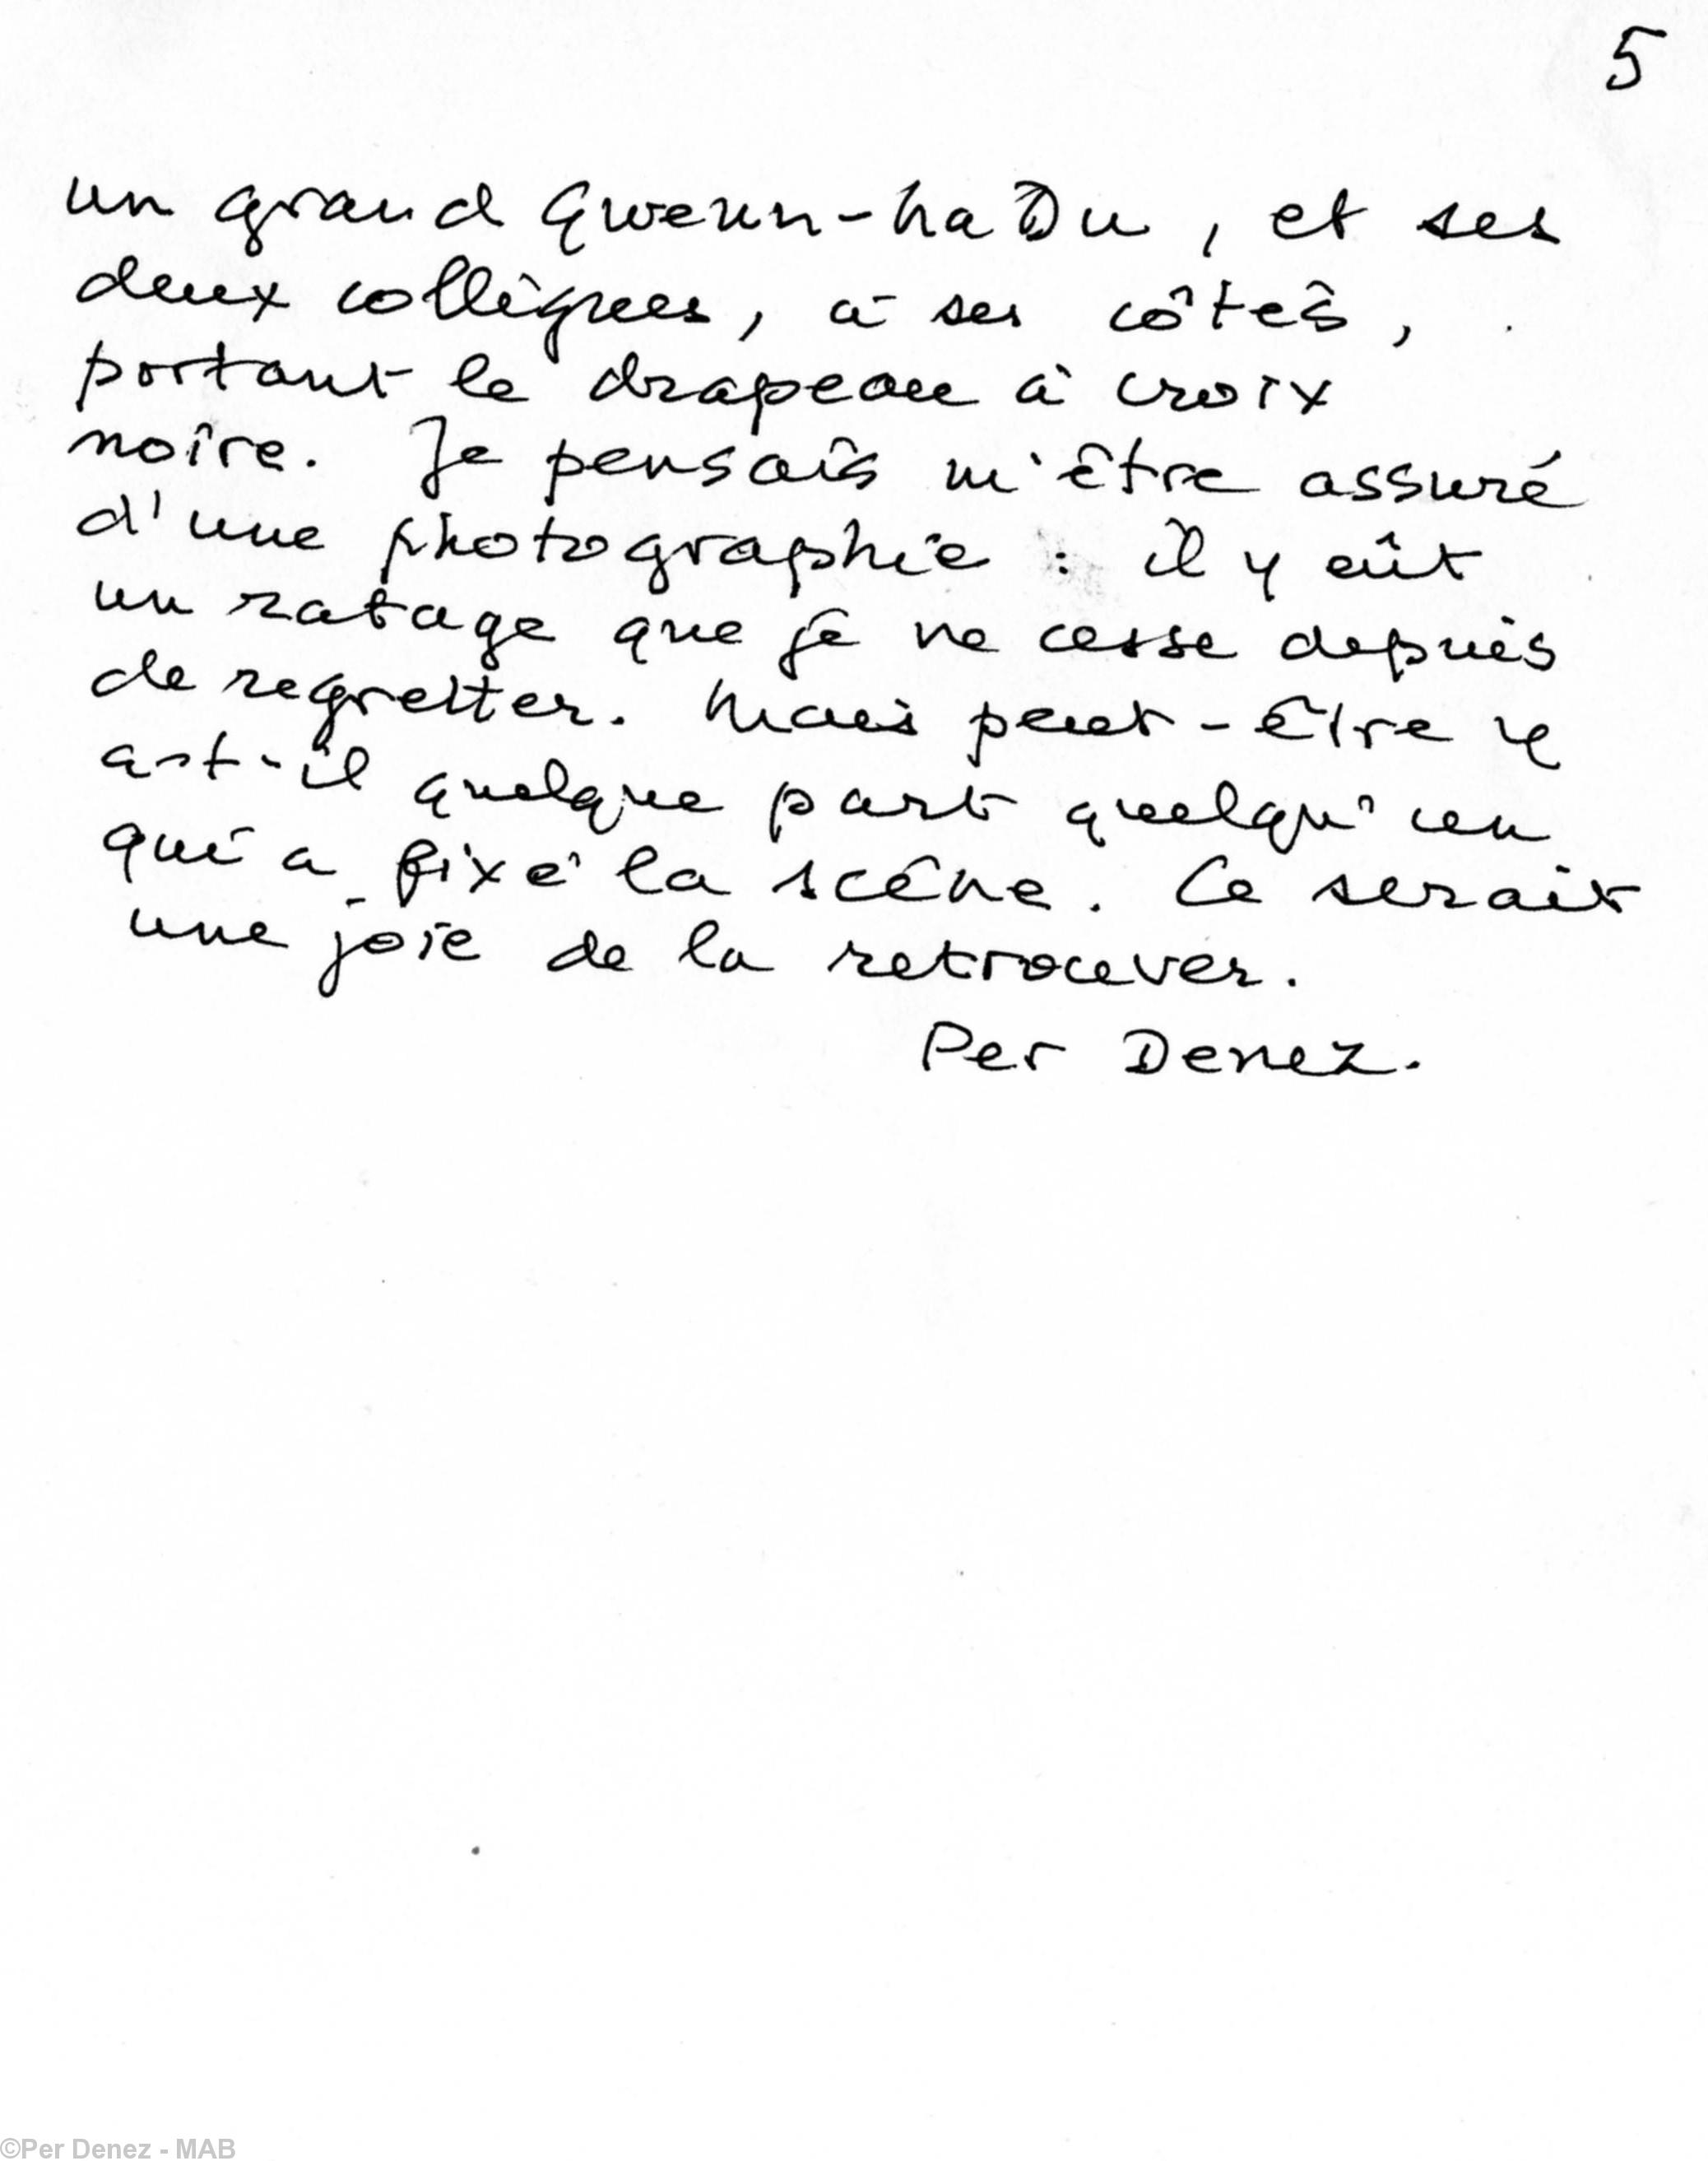 5
un grand Gwenn-ha Du, et ses
deux collègues, à ses côtés,
portant le drapeau à croix
noire. Je pensais m'être assuré
d'une photographie : il y eût
un ratage que je ne cesse depuis
de regretter. Mais peut-être y
a-t-il quelque part quelqu'un
qui a fixé la scène. Ce serait
une joie de la retrouver.
Per Denez.
©Per Denez - MAB